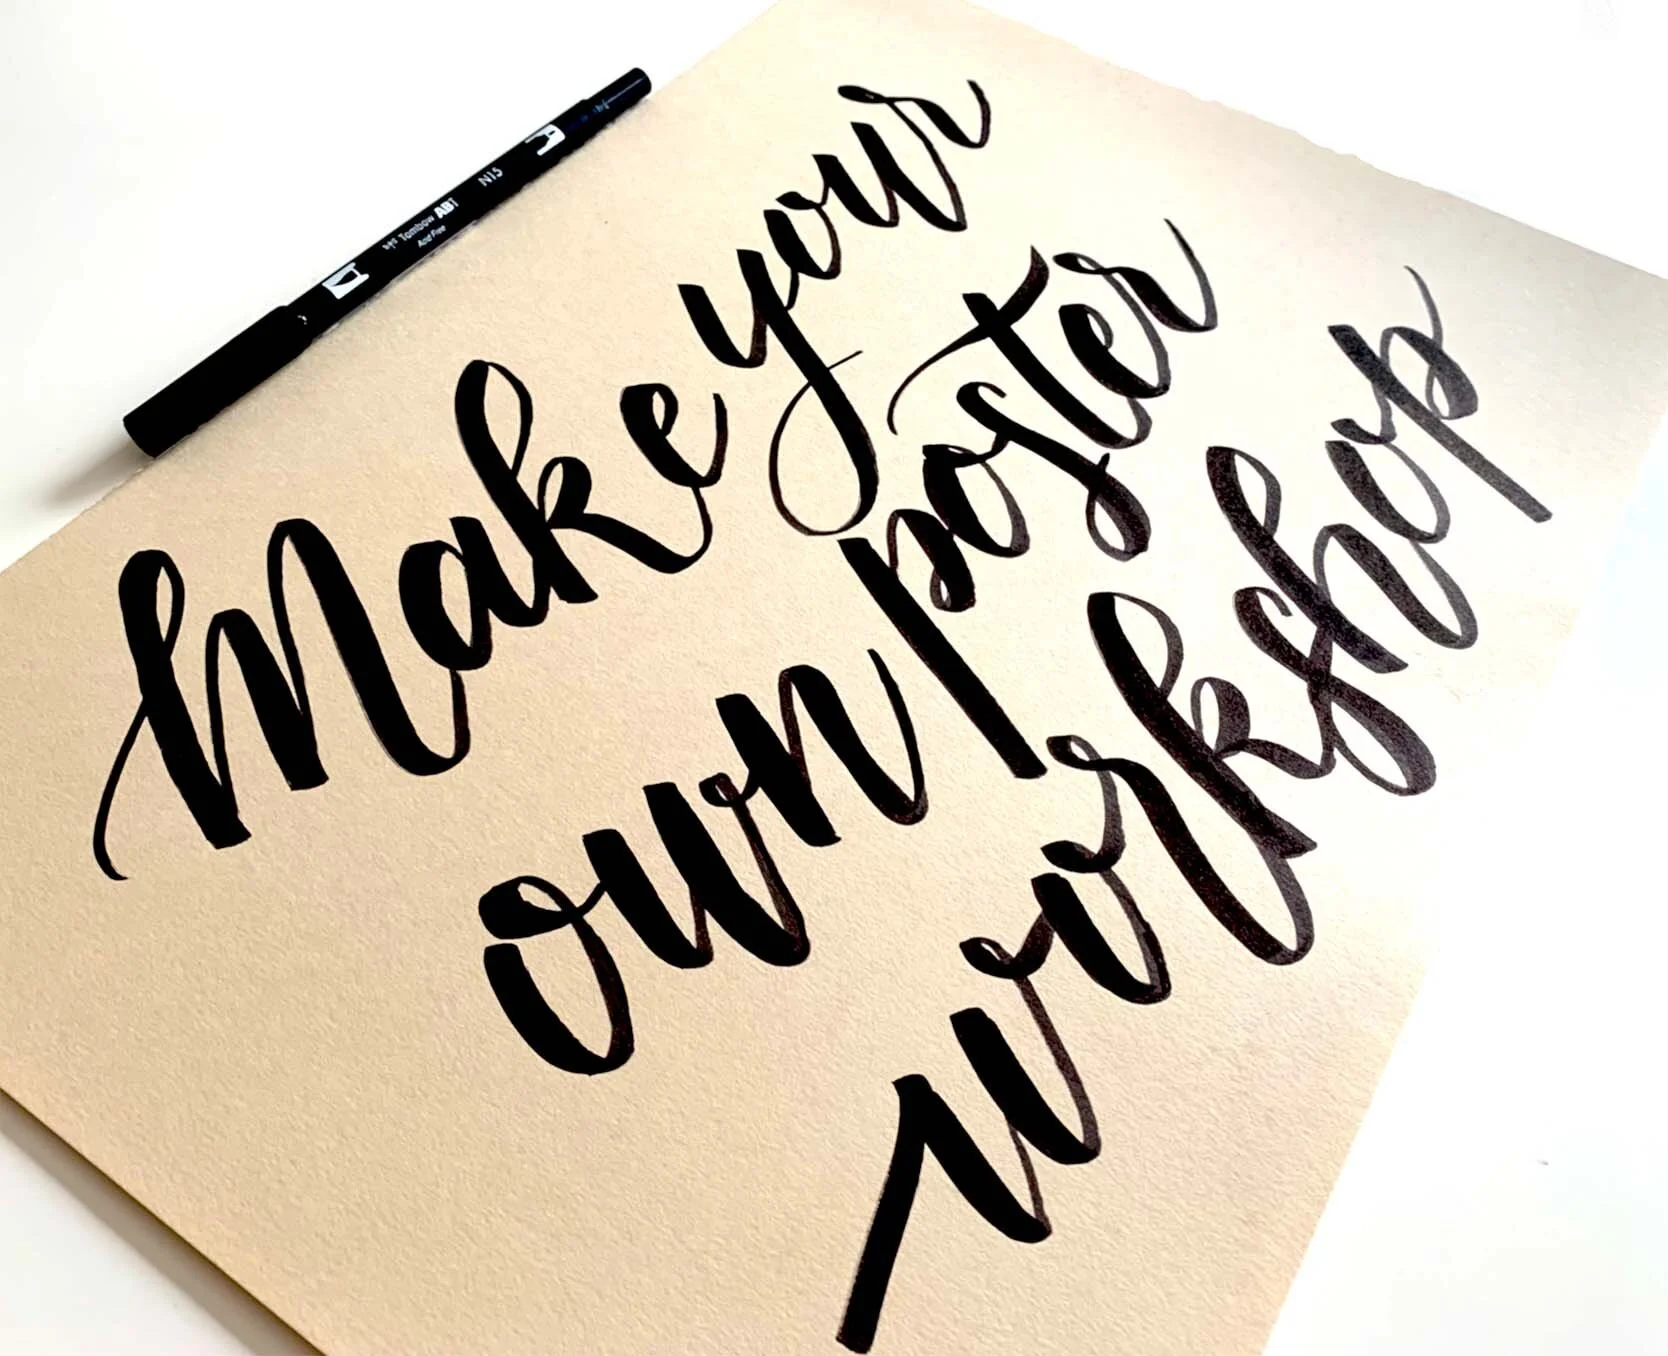 Make your
own poster
workshop
Tombow ABT
Acid Free
N15